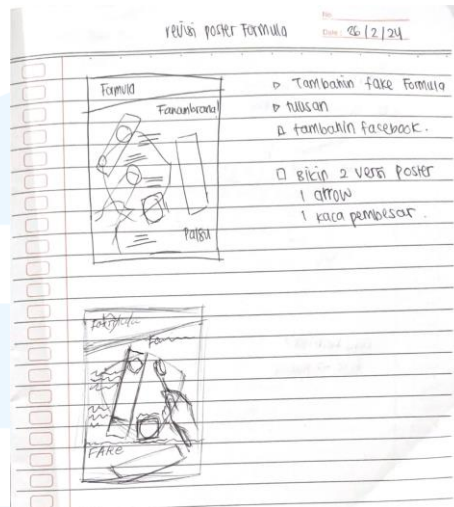 revisi poster Formula
No:
Date: 26/2/24
Formula
Fanambranal
Palsu
▷ Tambahin fake Formula
▷ tulisan
▷ tambahin facebook.
□ Bikin 2 versi poster
1 arrow
1 kaca pembesar.
FAKE